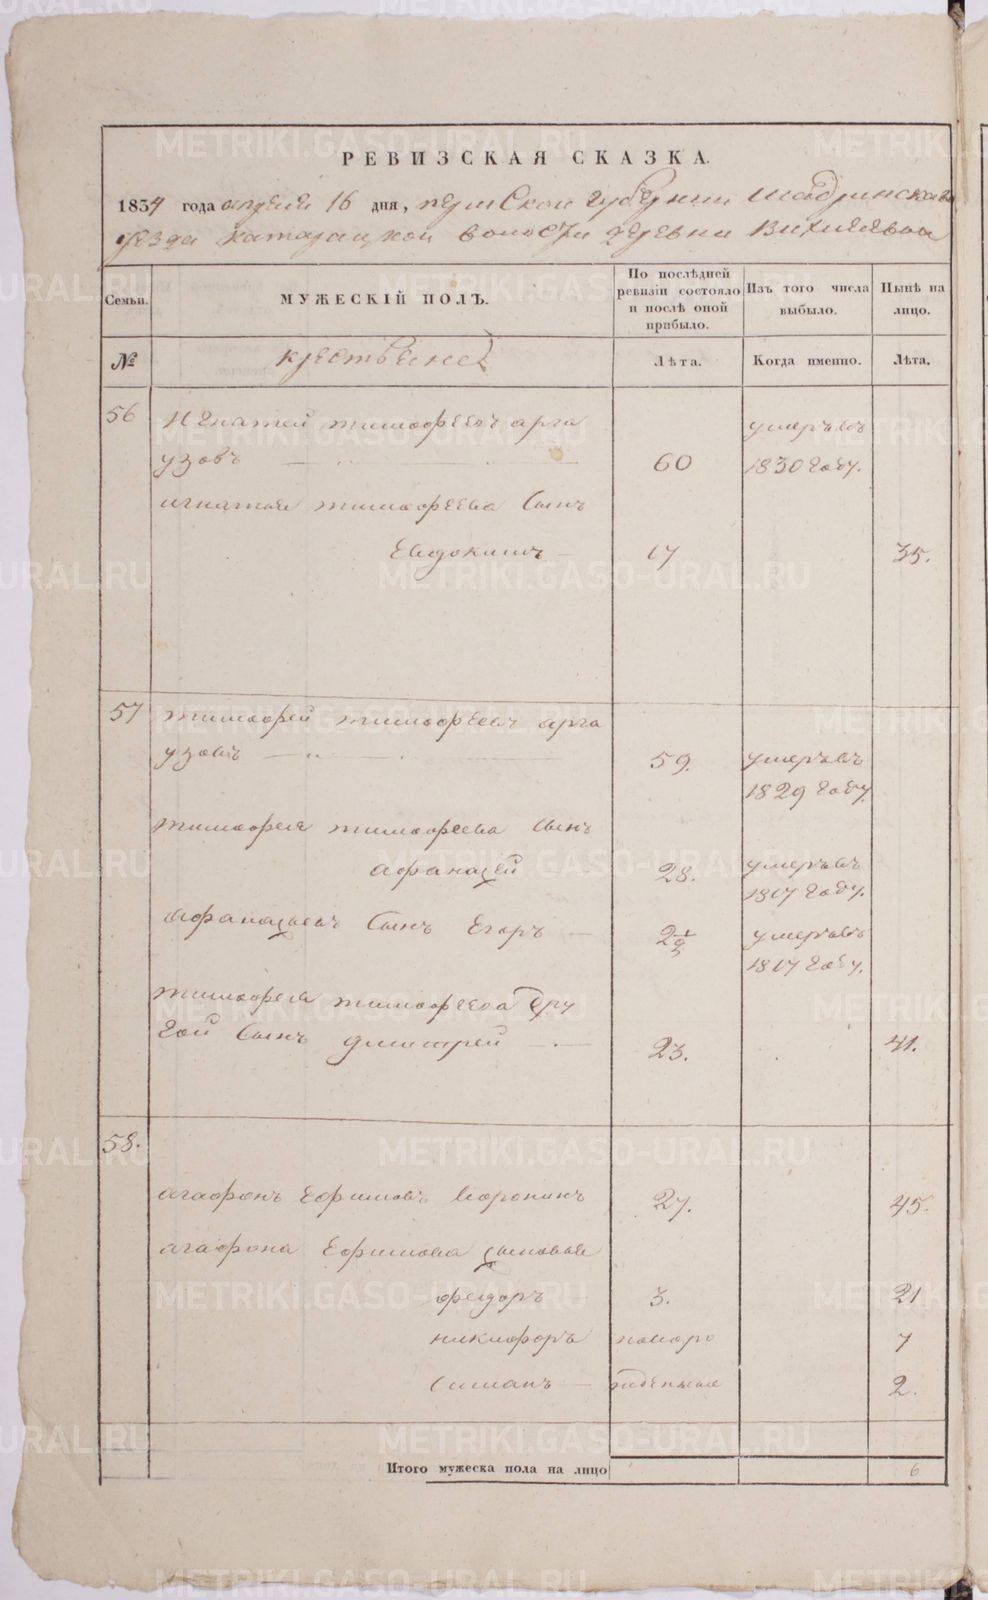 РЕВИЗСКАЯ СКАЗКА.
1834 года апреля 16 дня, пермской губернии Шадринскаго
уезда катарацкой волости деревни
Семьи.
МУЖЕСКІЙ ПОЛЪ.
По послѣдней ревизіи состояло и послѣ оной прибыло.
Изъ того числа выбыло.
Нынѣ на лицо.
№
крестьяне
Лѣта.
Когда именно.
Лѣта.
56 Игнатей тимофеевъ арга
узовъ 60 умеръ въ 1830 году.
игнатья тимофеева сынъ
Евдокимъ 17 35.
57 тимофей тимофеевъ арга
узовъ 59. умеръ въ 1829 году.
тимофея тимофеева сынъ
афанасей 28. умеръ въ 1817 году.
афанасьевъ сынъ Егоръ 2½ умеръ въ 1817 году.
тимофея тимофеева дру
гой сынъ дмитрей 23. 41.
58.
агафонъ Ефимовъ Воронинъ 27. 45.
агафона Ефимова сыновья
федоръ 3. 21
никифоръ новоро 7
Симанъ жденные 2.
Итого мужеска пола на лицо 6
METRIKI.GASO-URAL.RU